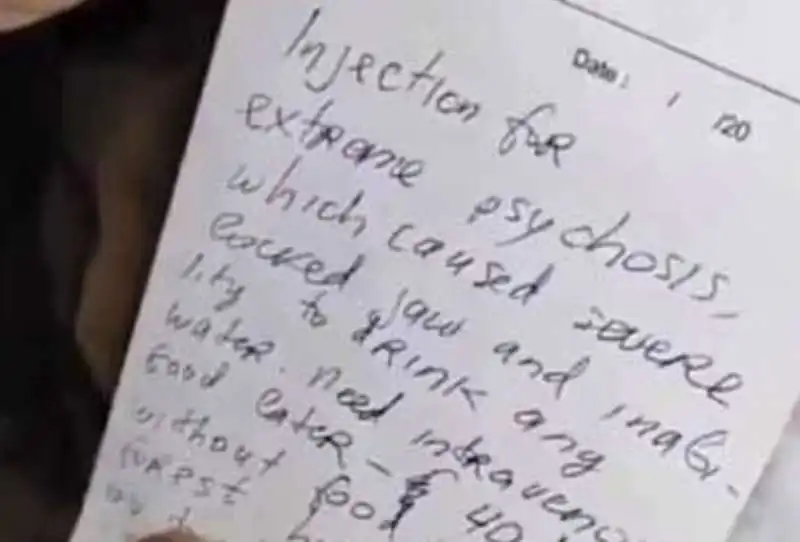 Date: / /20
Injection for
extrame psychosis,
which caused severe
locked jaw and inabi-
lity to drink any
water. need intraveno
food later - 40
without food
forest